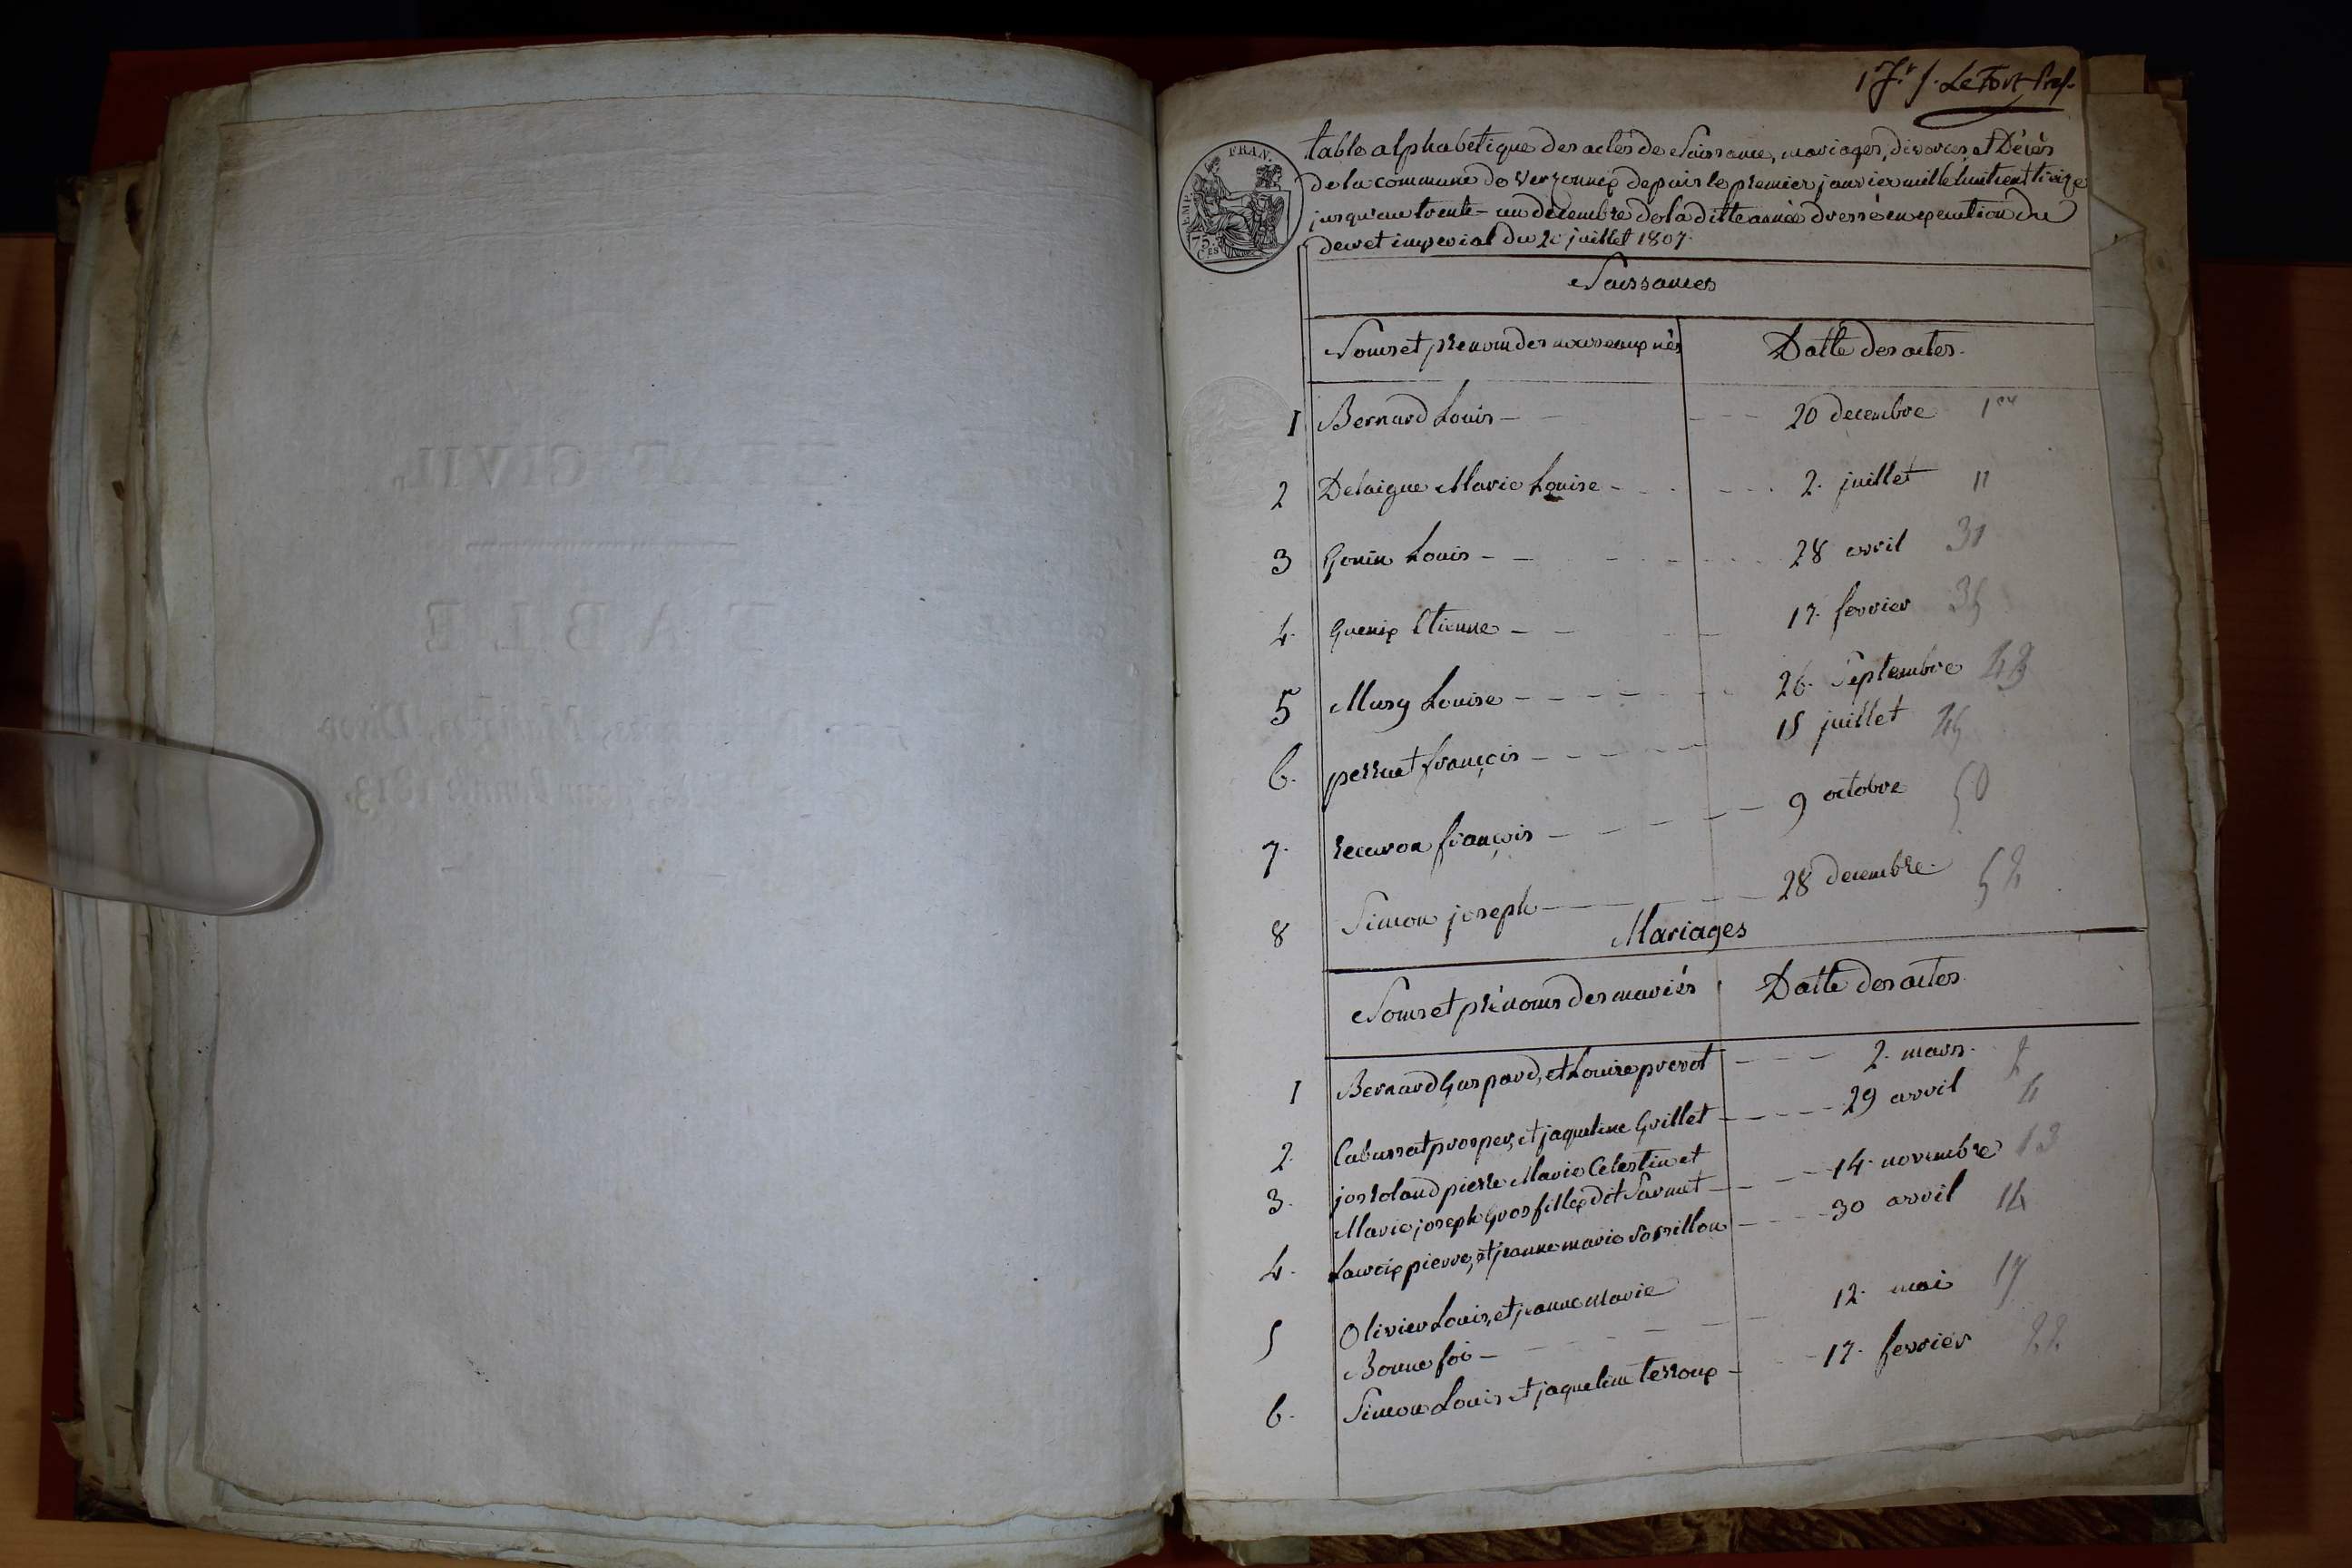 1 fr. f. Le Fort Prest.
EMP. FRAN.
75. CES
table alphabetique des actes de Naissance, mariages, divorces, et Décès
de la commune de Verzonnex depuis le premier janvier mille huit cent treize
jusqu'au trente-un decembre de la ditte année dressé en execution du
decret imperial du 20 juillet 1807.
Naissances
Noms et prenom des nouveaux nés Datte des actes.
1 Bernard Louis 20 decembre 1er
2 Delaigue Marie Louise 2. juillet 11
3 Gonin Louis 28 avril 31
4. Guenix Etienne 17. fevrier 35
5 Mury Louise 26. Septembre 43
6. perruet françois 15 juillet 45
7. recuron françois 9 octobre 50
8 Simon joseph 28 decembre. 52
Mariages
Noms et prénoms des mariés Datte des actes.
1 Bernard Gaspard, et Louise prevot 2. mars. 2
2. Cabussat prosper, et jaqueline Grillet 29 avril 4
3. josroland pierre Marie Celestin et
Marie joseph Grosfillex dit Parnet 14. novembre 13
4. Lacroix pierre, et jeanne marie Vossillon 30 avril 14
5 Olivier Louis, et jeanne Marie
Bonne foi 12. mai 17
6. Simon Louis et jaqueline terroux 17. fevrier 22